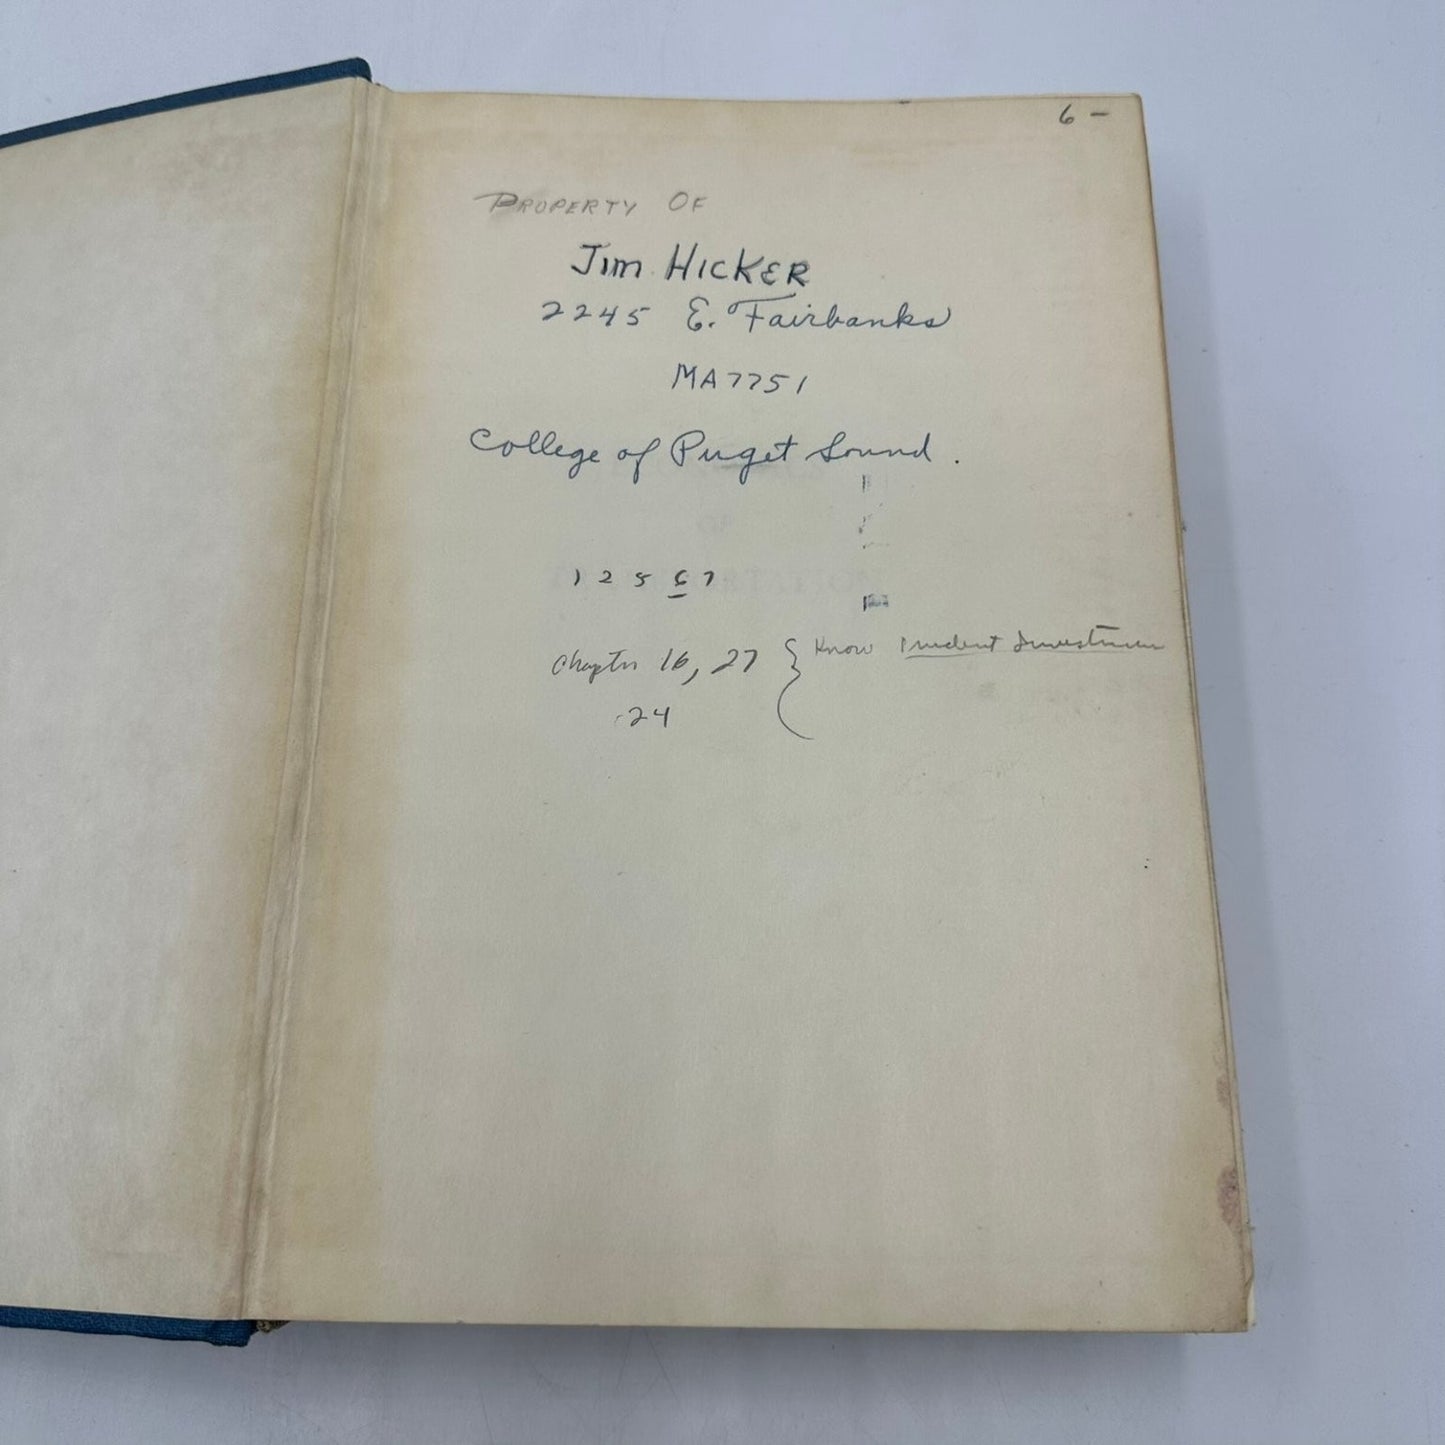 6 -
PROPERTY OF
Jim HICKER
2245 E. Fairbanks
MA7751
College of Puget Sound.
1 2 5 6 7
Chapter 16, 27 { Know Prudent Investment
24